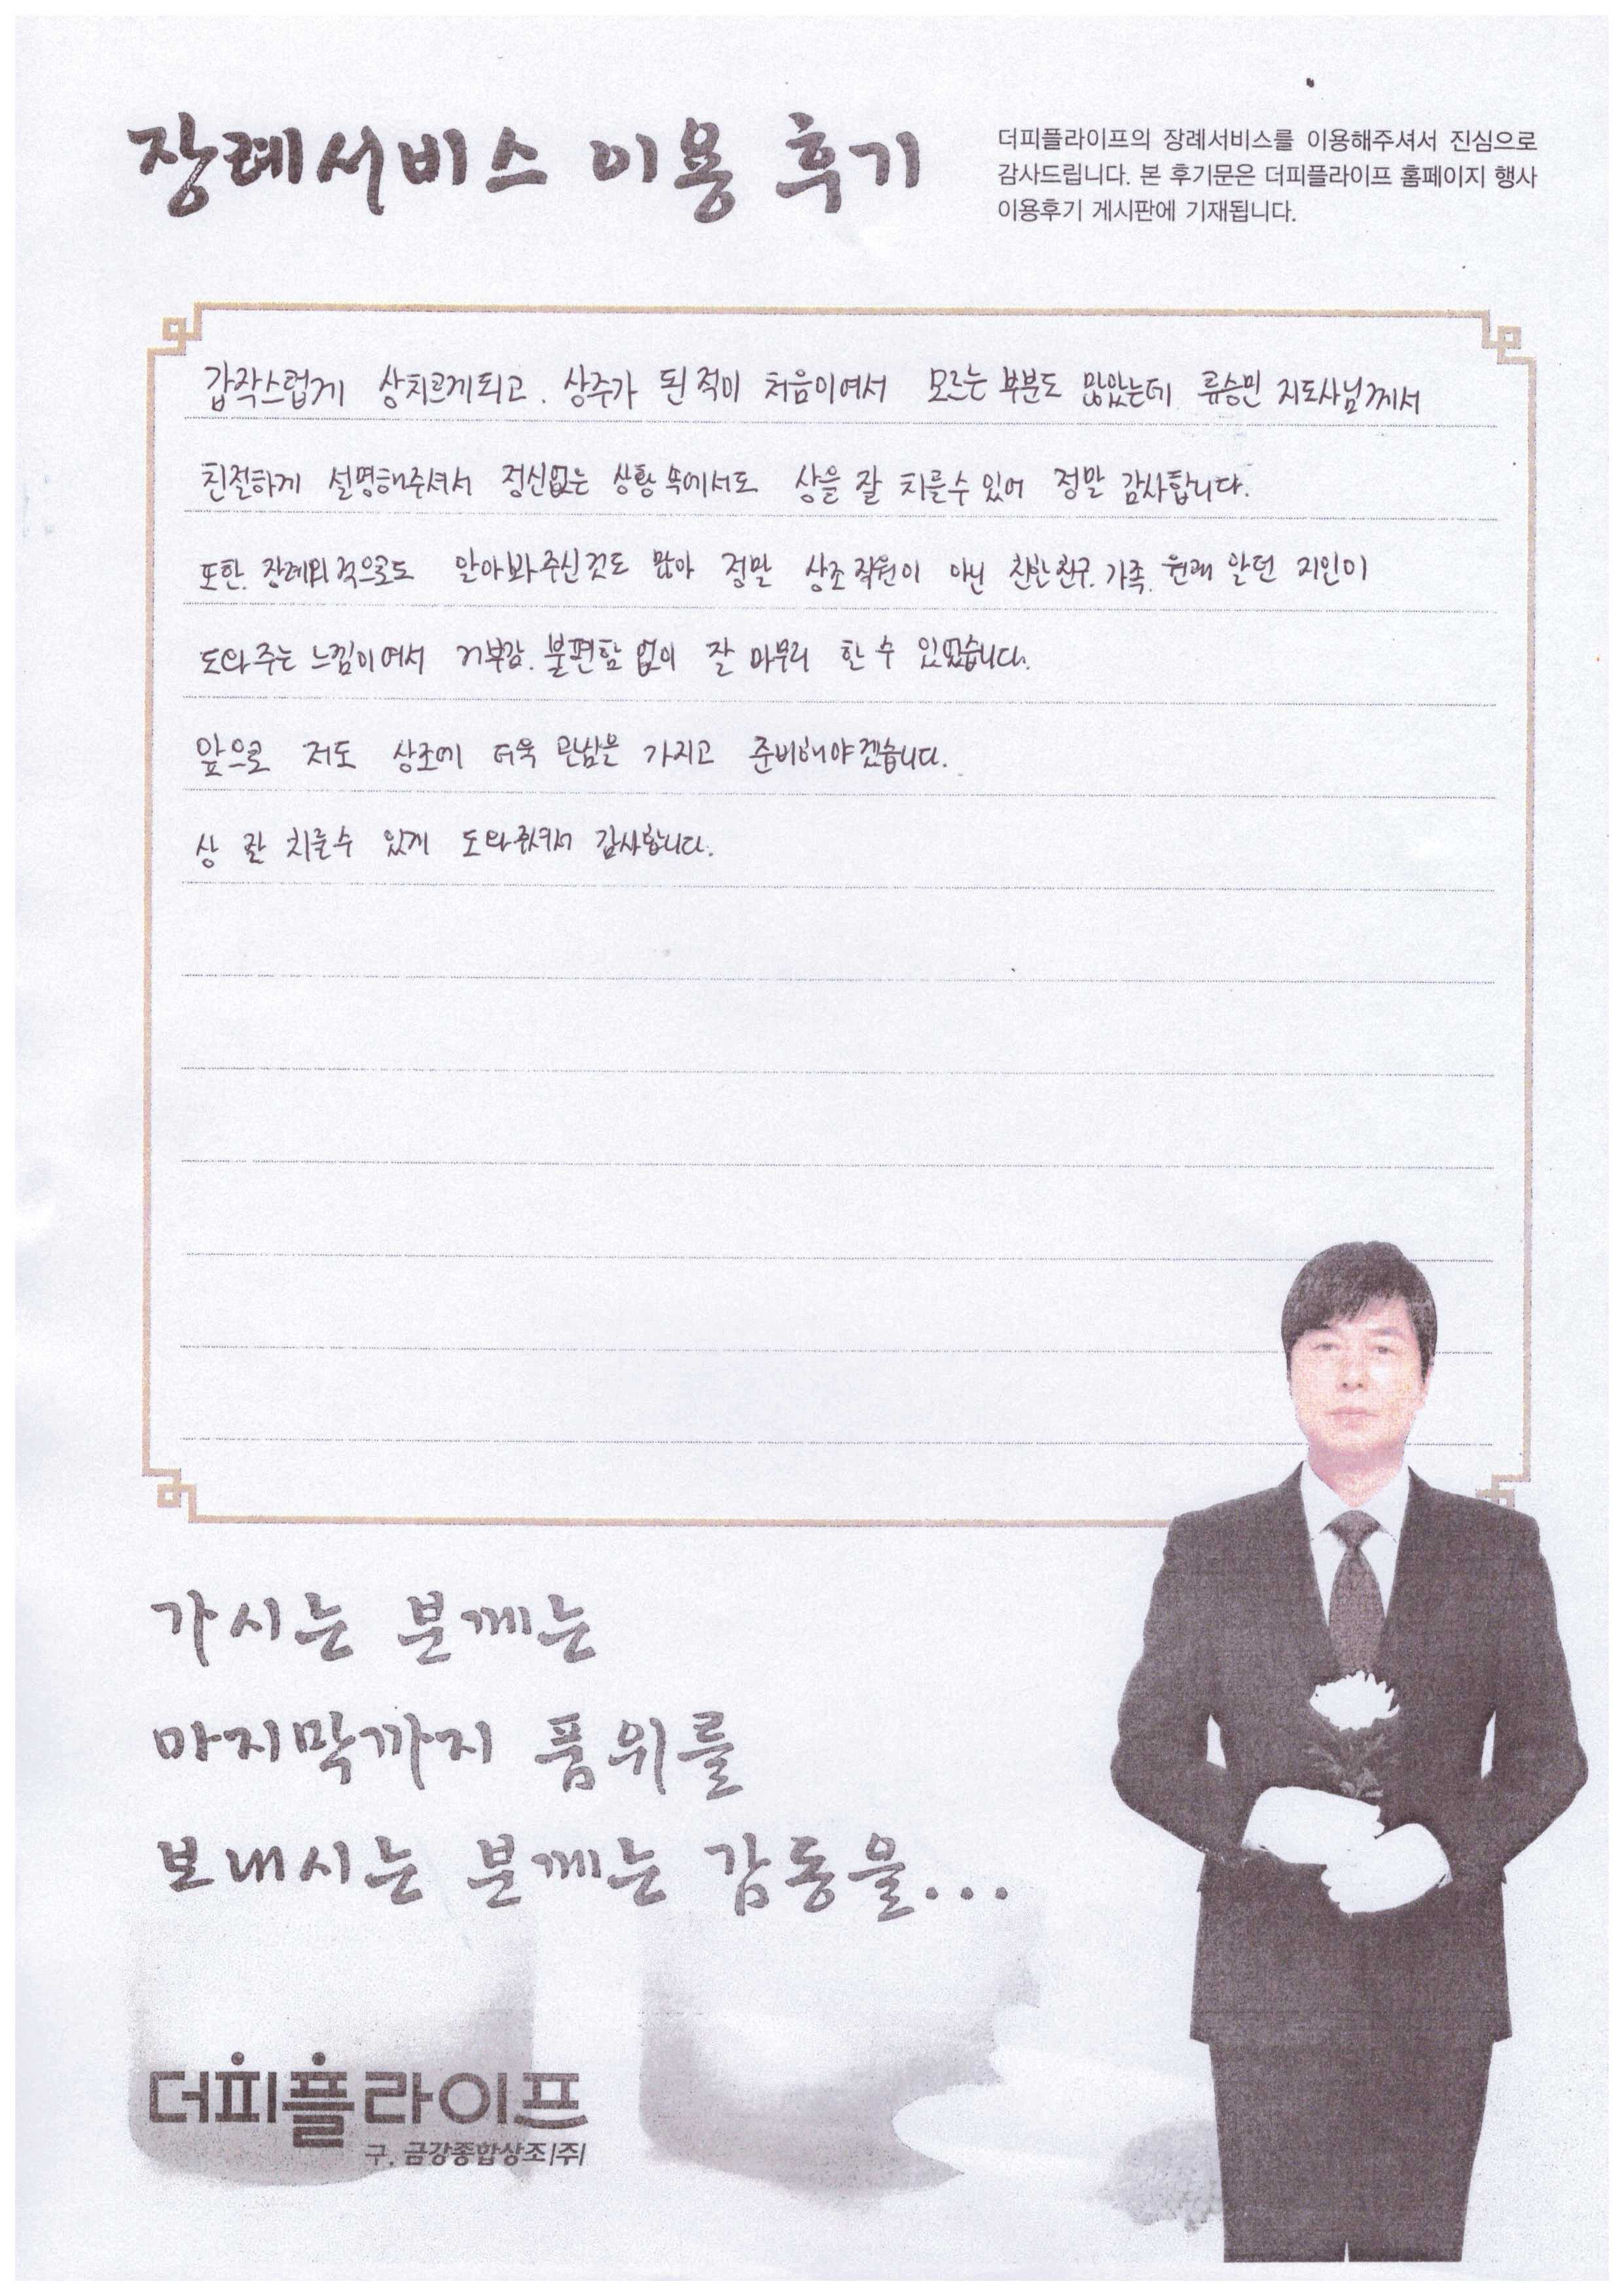 장례서비스 이용 후기
더피플라이프의 장례서비스를 이용해주셔서 진심으로
감사드립니다. 본 후기문은 더피플라이프 홈페이지 행사
이용후기 게시판에 기재됩니다.
갑작스럽게 상치르게되고. 상주가 된적이 처음이여서 모르는 부분도 많았는데 류승민 지도사님께서
친절하게 설명해주셔서 정신없는 상황 속에서도 상을 잘 치를수있어 정말 감사합니다.
또한. 장례외적으로도 알아봐주신것도 많아 정말 상조직원이 아닌 친한친구. 가족. 원래 알던 지인이
도와주는 느낌이여서 거부감. 불편함 없이 잘 마무리 할 수 있었습니다.
앞으로 저도 상조에 더욱 관심을 가지고 준비해야겠습니다.
상 잘 치를수 있게 도와줘서 감사합니다.
가시는 분께는
마지막까지 품위를
보내시는 분께는 감동을...
더피플라이프
구. 금강종합상조|주|